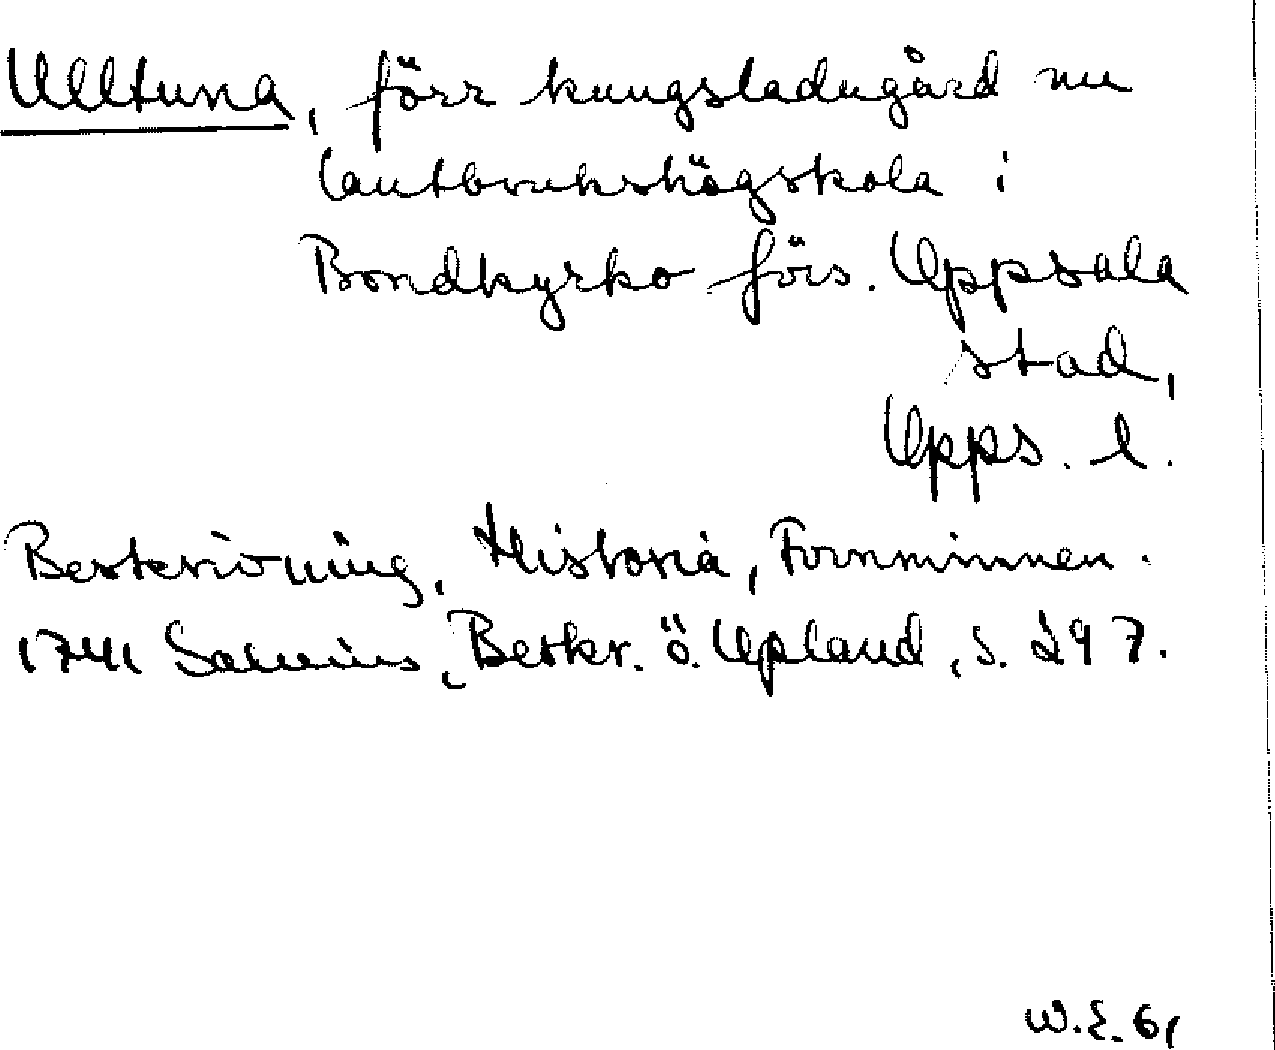 Ulltuna, förr kungsladugård nu
lantbrukshögskola i
Bondkyrko förs. Uppsala
stad,
Upps. l.
Beskrivning, Historia, Fornminnen.
1741 Salvius, Beskr. ö. Upland, s. 297.
W.E. 61